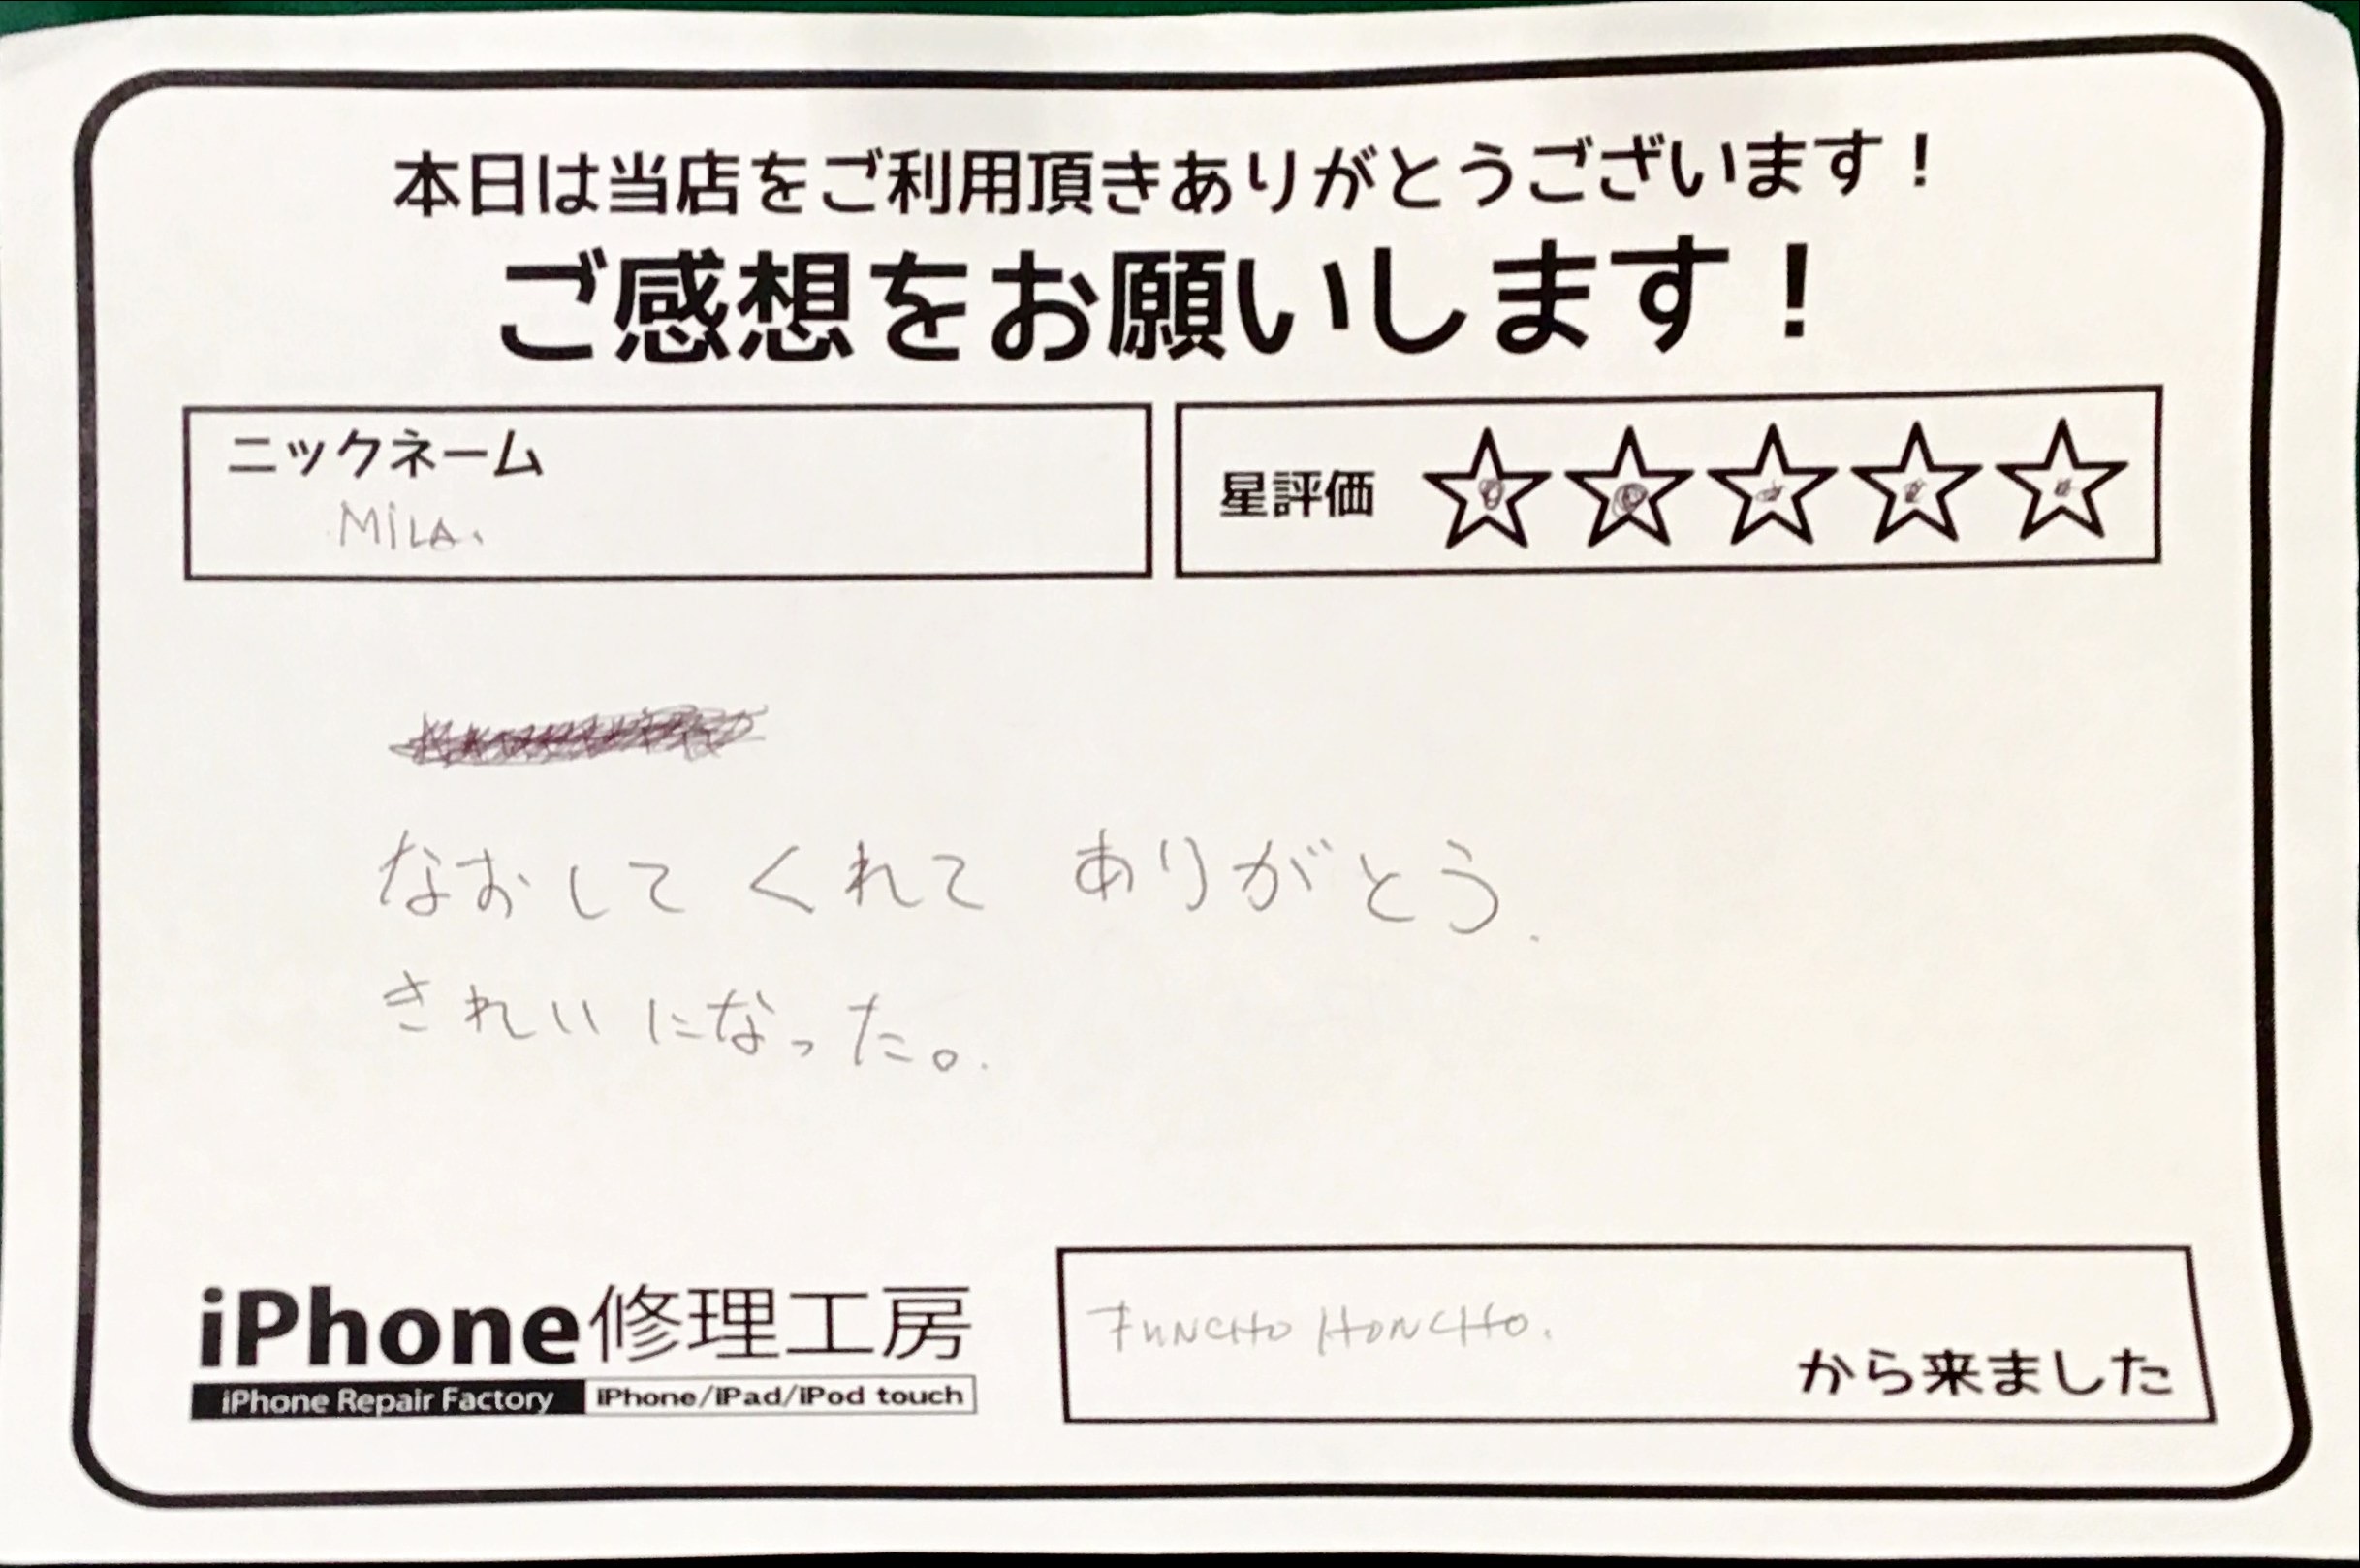 本日は当店をご利用頂きありがとうございます！
ご感想をお願いします！
ニックネーム
MiLA.
星評価
なおして くれて ありがとう.
きれいになった。.
iPhone修理工房
iPhone Repair Factory iPhone/iPad/iPod touch
FUNCHO HONCHO.
から来ました